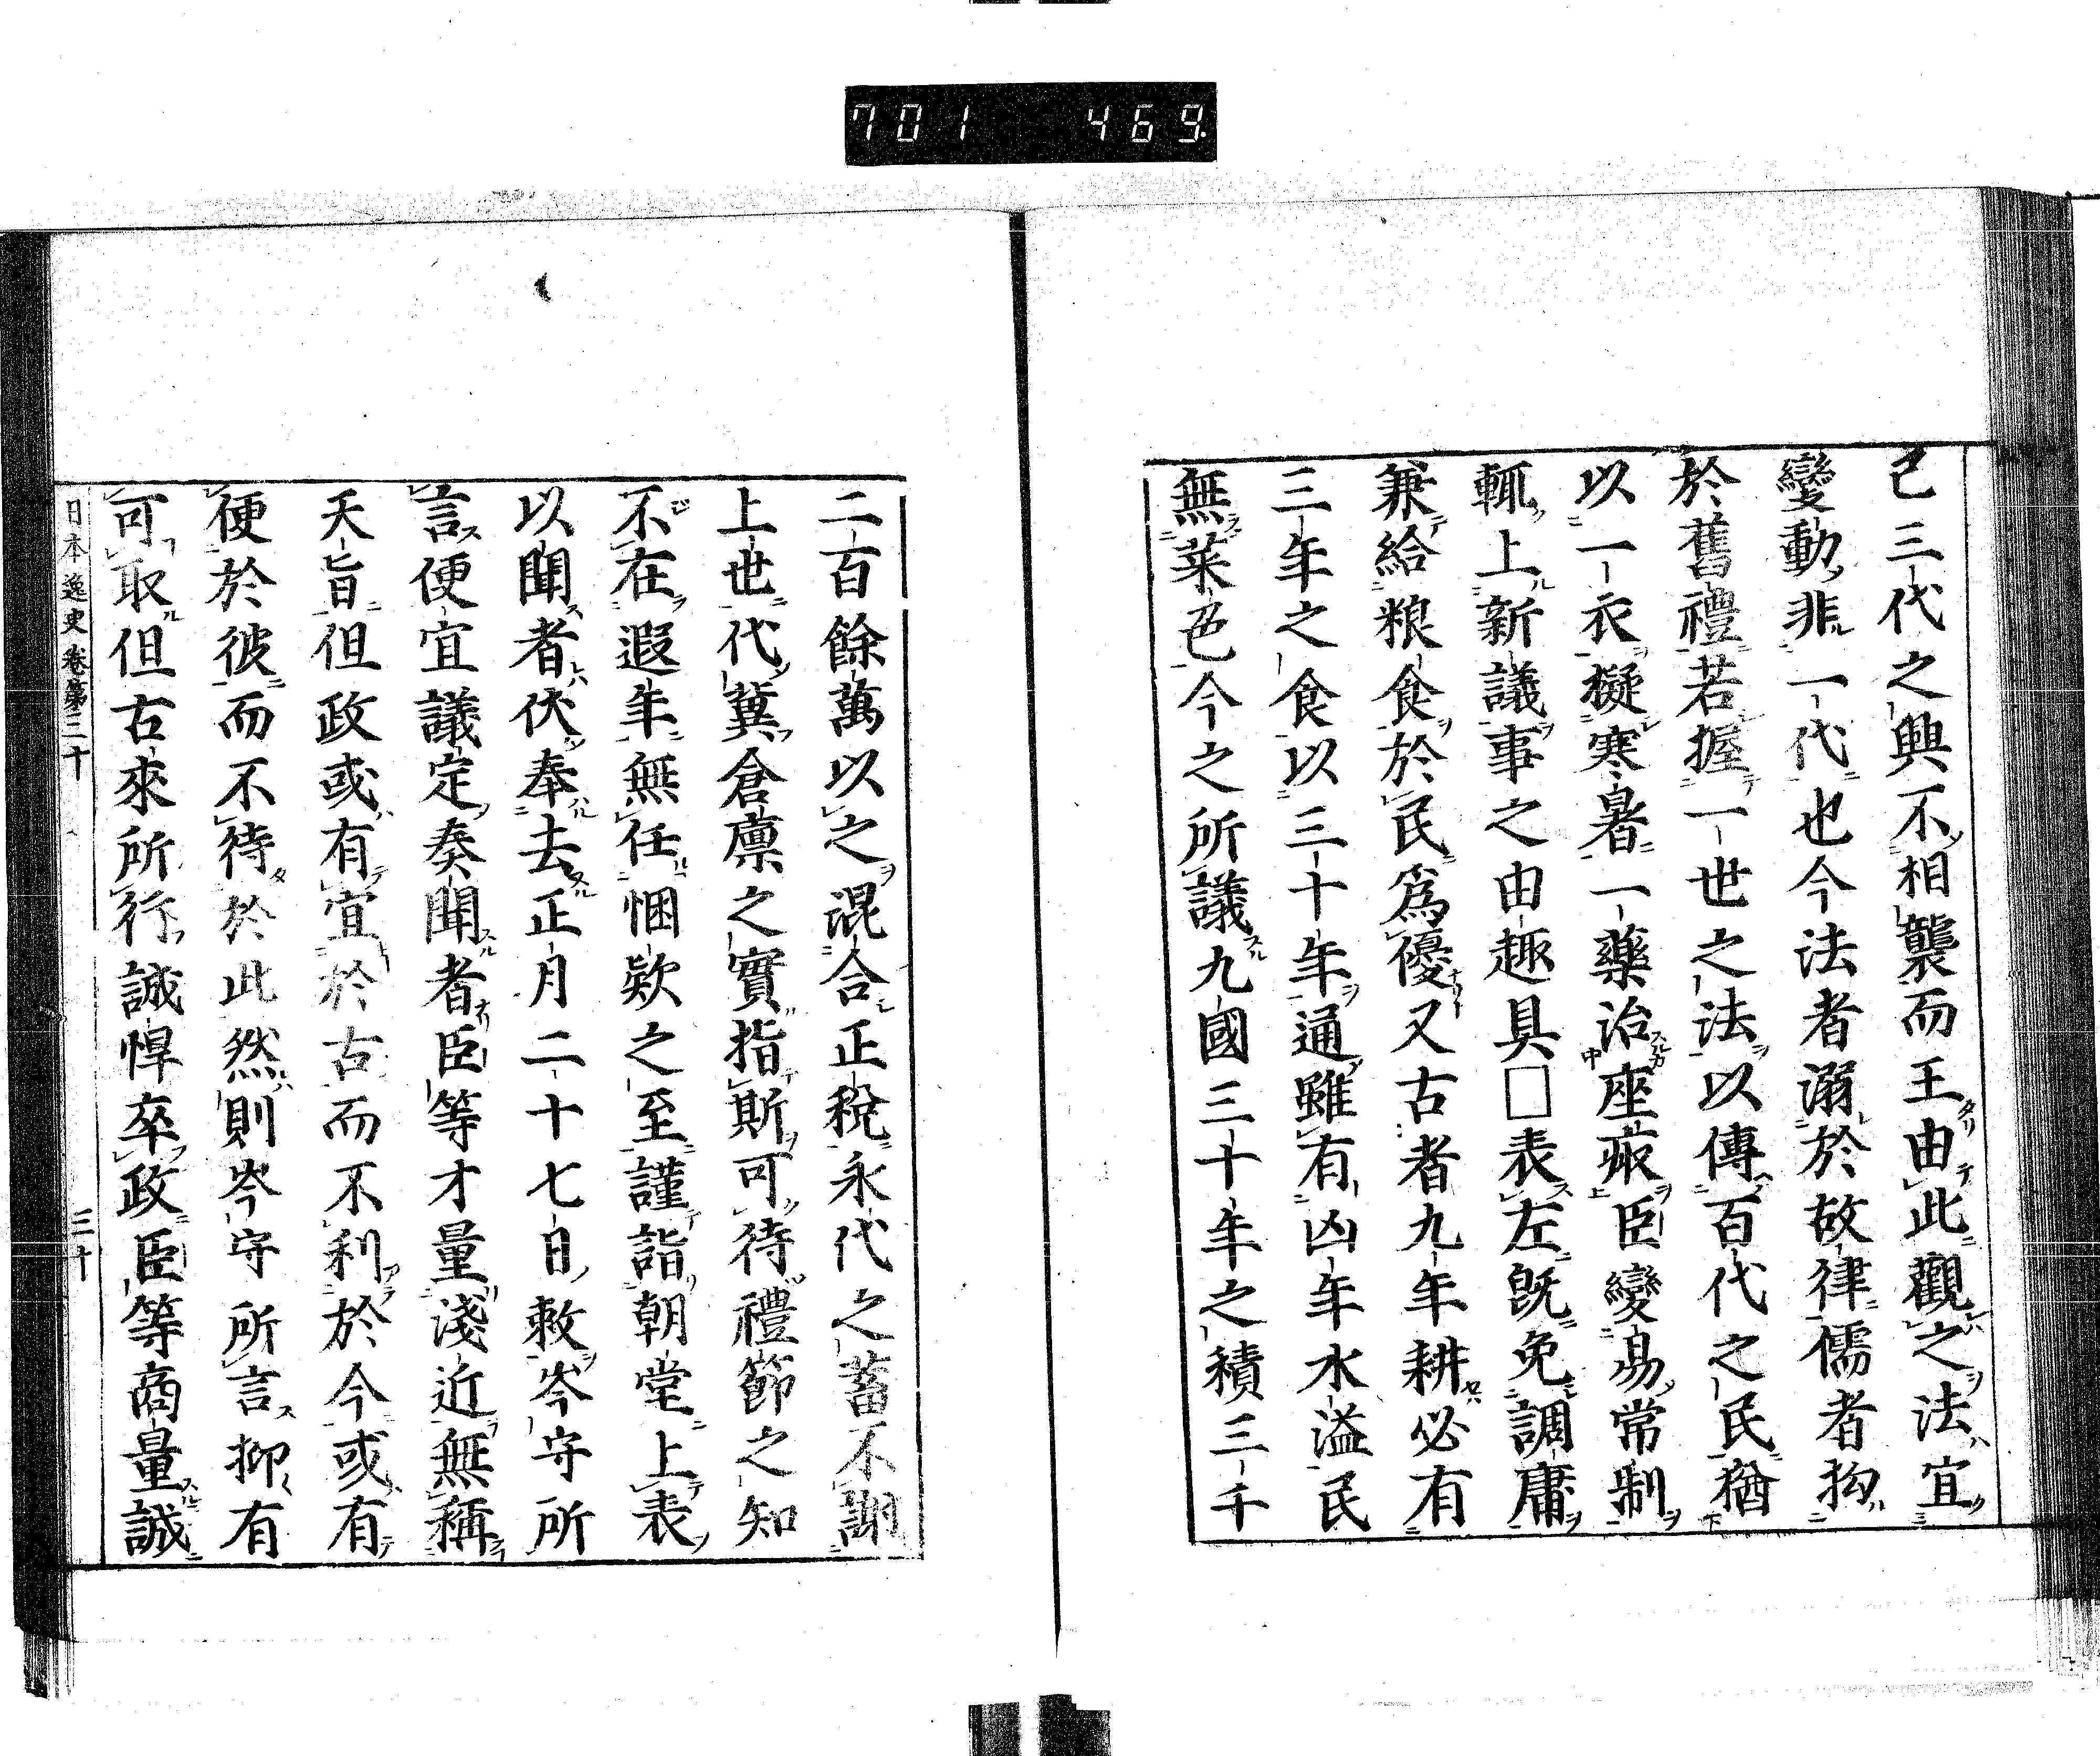 701 469
已三代之興不相襲而王由此觀之法宜
變動非一代也今法者溺於故律儒者拘
於舊禮若握一世之法以傳百代之民猶
以一衣擬寒暑一藥治座疢臣變易常制
輒上新議事之由趣具□表左既免調庸
兼給粮食於民爲優又古者九年耕必有
三年之食以三十年通雖有凶年水溢民
無菜色今之所議九國三十年之積三千
二百餘萬以之混合正稅永代之蓄不謝
上世代冀倉廪之實指斯可待禮節之知
不在遐年無任悃欵之至謹詣朝堂上表
以聞者伏奉去正月二十七日敕岑守所
言便宜議定奏聞者臣等才量淺近無稱
天旨但政或有宜於古而不利於今或有
便於彼而不待於此然則岑守所言抑有
可取但古來所行誠悍卒政臣等商量誠
日本逸史卷第三十 三十